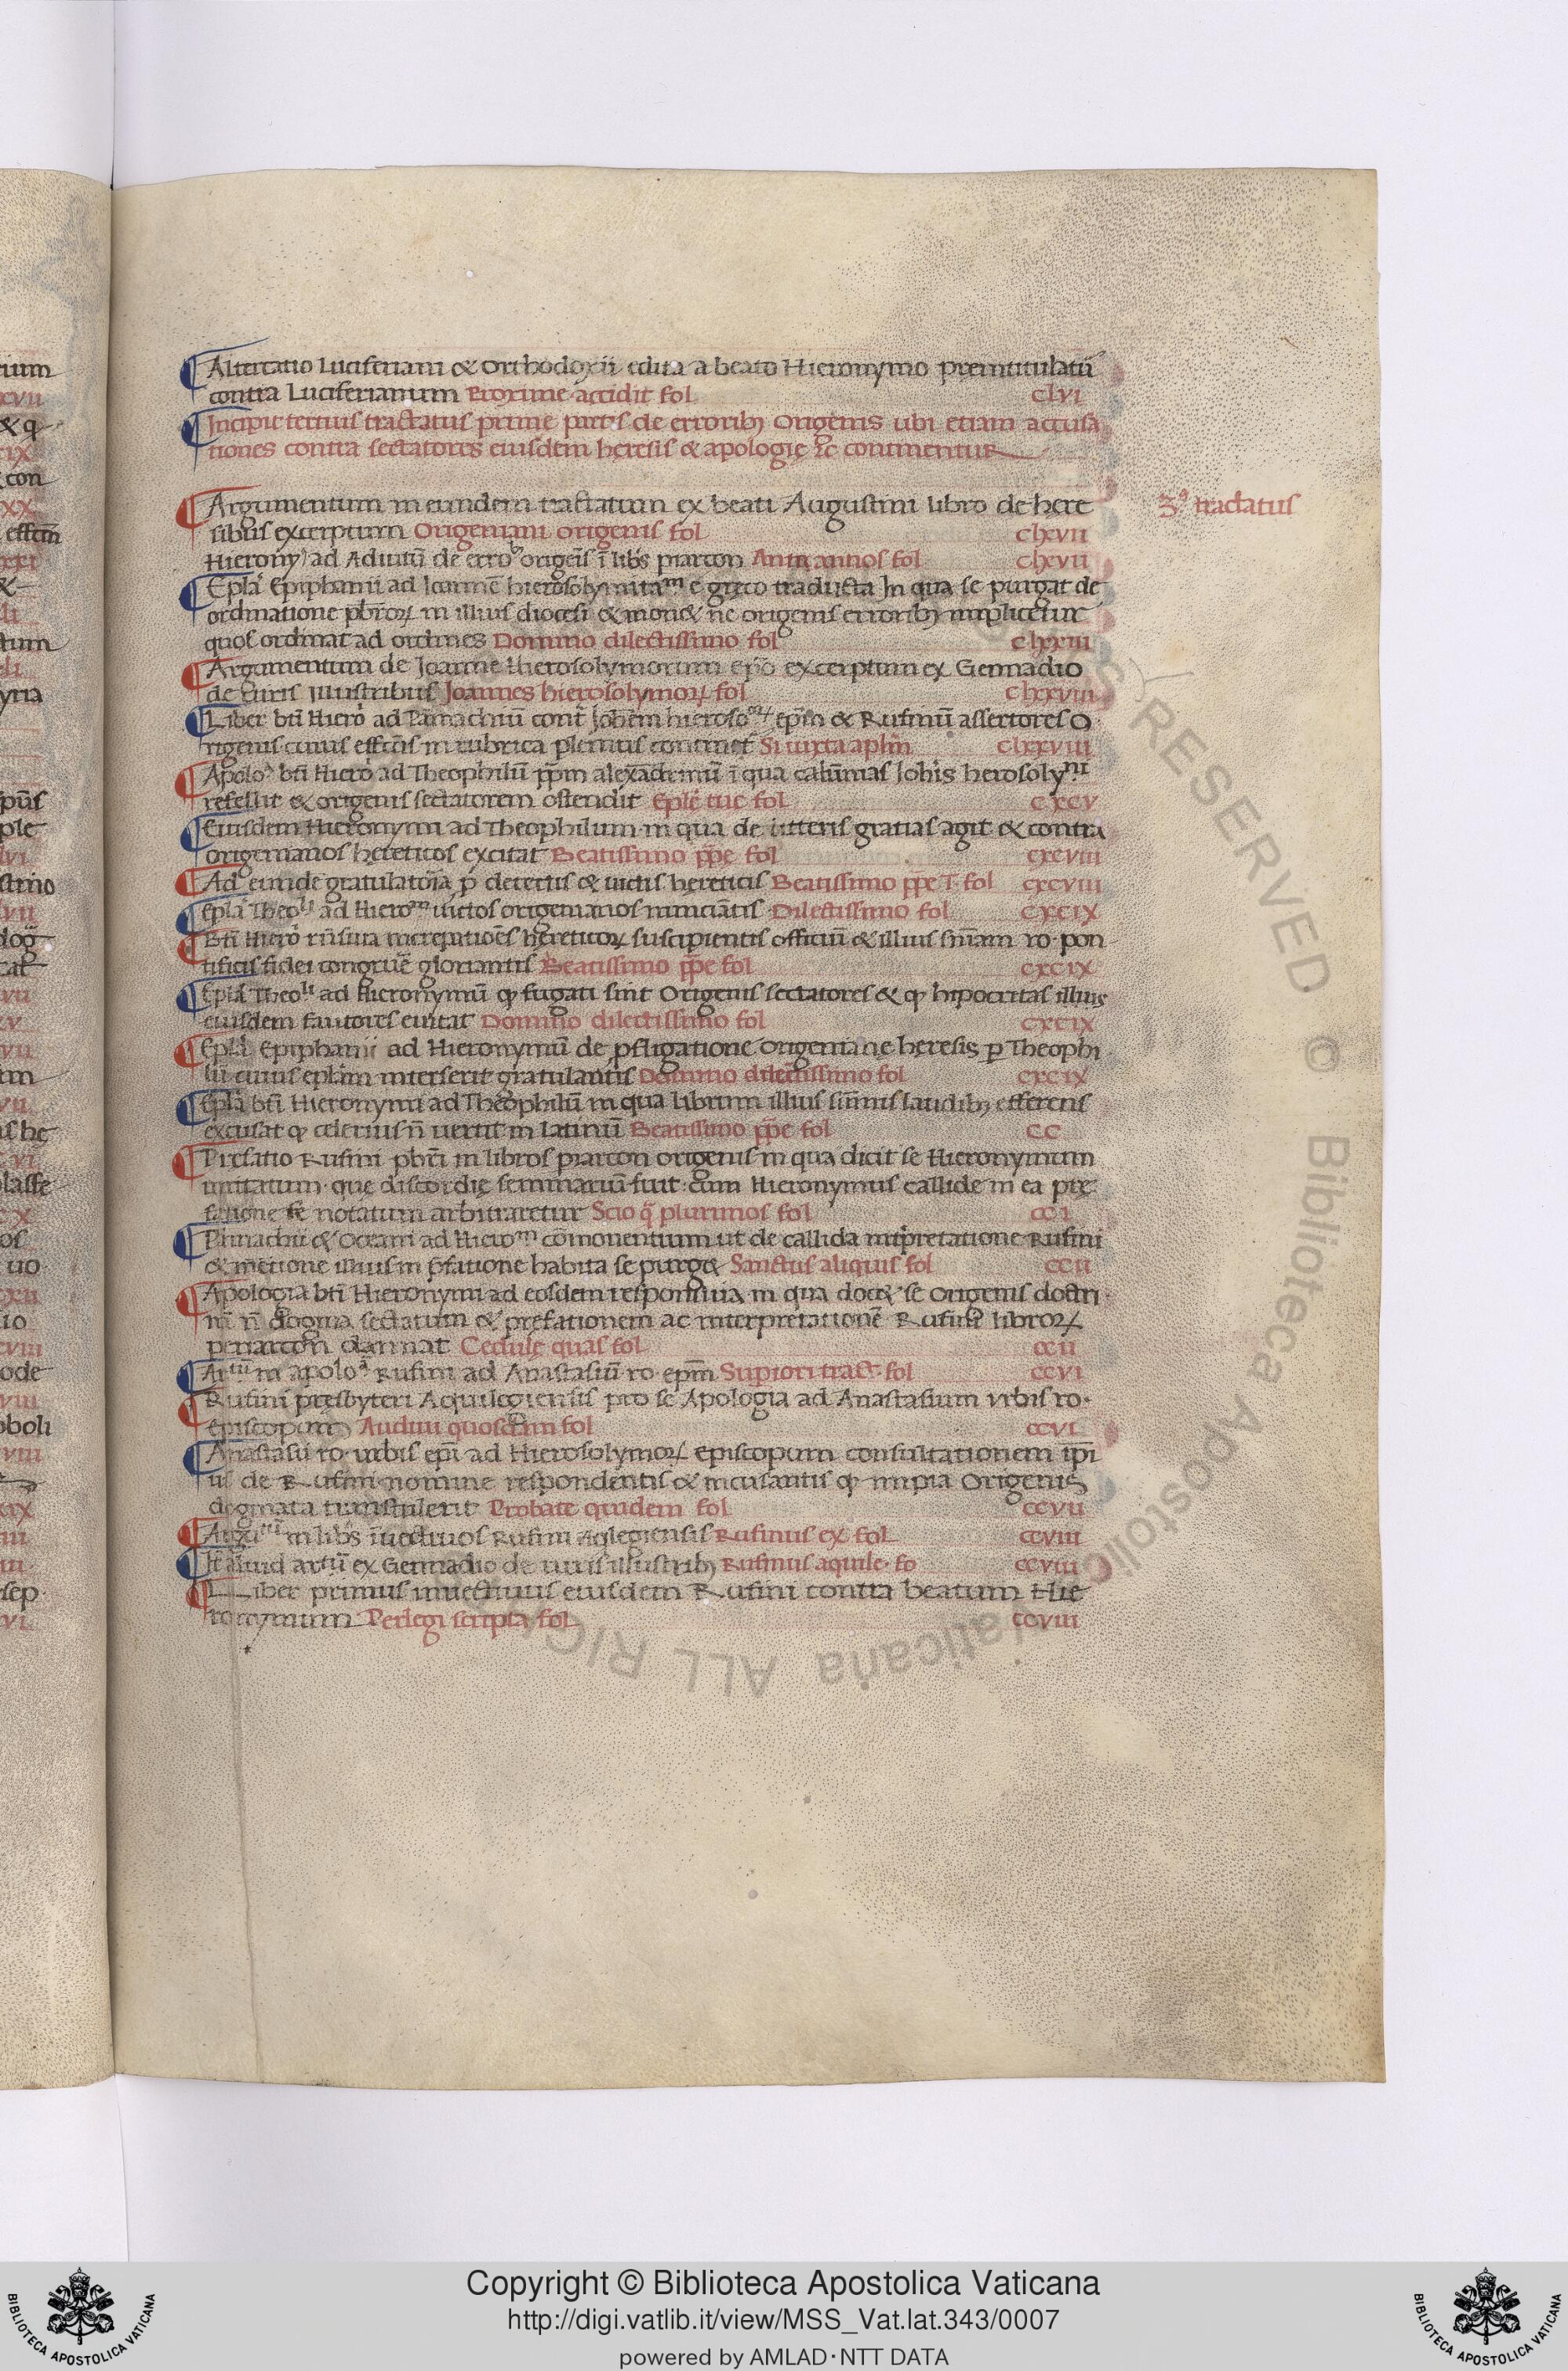 Altercatio Luciferiani & Orthodoxii edita a beato Hieronymo prenititulatū
contra Luciferianum Proxime accidit fol clvi
Incipit tertius tractatus prime ptis de erroribꝫ Origenis ubi etiam accusa
tiones contra sectatores eiusdem heresis & apologię ⁊c continentur
Argumentum in eundem tractatum ex beati Augustini libro de here
3ꝰ tractatus
sibus excerptum Origeniani origenis fol clxvii
Hierony ad Aduitū de erroꝫ origeīs ī libs piarcon Ante annos fol clxvii
Epla Epiphanii ad Ioannē hierosolymitaᵐ e gręco traducta In qua se purgat de
ordinatione pbrorꝝ in illius diocesi & mon& ne origenis erroribꝫ implicetur
quos ordinat ad ordines Domino dilectissimo fol clxxiii
Argumentum de Joanne Hierosolymorum epo excerptum ex Gennadio
de uiris illustribus Joannes hierosolymorꝝ fol clxxviii
Liber bti Hiero ad Pāmachiū cont Johēm hieroso epm & Rufinū assertores O
rigenis cuius effctus in rubrica plenius continet Si iuxta aplm clxxviii
Apolo bti Hiero ad Theophilū ppm alexādrinū ī qua calūnias Johis herosolyᵐⁱ
refellit & origenis sectatorem ostendit Eplę tue fol cxcv
Eiusdem Hieronymi ad Theophilum in qua de litteris gratias agit & contra
origenianos hereticos excitat Beatissimo ppę fol cxcviii
Ad eundē gratulatoria p detectis & uictis hereticis Beatissimo ppe T. fol cxcviii
Epla Theoˡⁱ ad Hieroᵐ uictos origenianos nunciātis Dilectissimo fol cxcix
Bti Hiero rn̄siua increpatioēs hereticorꝝ suscipientis officiū & illius sm̄am ro pon
tificis fidei congruē gloriantis Beatissimo ppe fol cxcix
Epla Theoˡⁱ ad Hieronymū ꝙ fugati sint Origenis sectatores & ꝙ hipocritas illius
eiusdem fautores euitat Domino dilectissimo fol cxcix
Epla Epiphanii ad Hieronymū de pfligatione origenianę heresis p Theophi
lū cuius eplam interserit gratulantis Domino dilectissimo fol cxcix
Epla bti Hieronymi ad Theophilū in qua librum illius sum̄is laudibꝫ efferens
excusat ꝙ celerius n̄ uertit in latinū Beatissimo ppe fol cc
Prefatio Rufini pbri in libros piarcon origenis in qua dicit se Hieronymum
imitatum que discordię seminariū fuit cum Hieronymus callide in ea pre
fatione se notatum arbitraretur Scio q̄ plurimos fol cci
Pāmachii & Oceani ad Hieroᵐ cōmonentium ut de callida int̄pretatione Rufini
& mētione illius in p̄fatione habita se purg& Sanctus aliquis fol ccii
Apologia bti Hieronymi ad eosdem responsiua in qua doc& se Origenis doctri
nā n̄ dogma sectatum & pręfationem ac interpretationē Rufini librorꝝ
periarcon damnat Cedulę quas fol ccii
Arᵗᵘᵐ in apolo Rufini ad Anastasiū ro epm Supiori tract fol ccvi
Rufini presbyteri Aequilegiensis pro se Apologia ad Anastasium urbis ro
Episcopum Audiui quosdam fol ccvi
Anastasii ro urbis epi ad Hierosolymorꝝ Episcopum consultationem ipi
us de Rufini nomine respondentis & incusantis ꝙ impia Origenis
dogmata transtulerit Probate quidem fol ccvii
in libs īuectiuos Rufini Aqlegiensis Rufinus ex fol ccviii
It aliud artū ex Gennadio de uiris illustribꝫ Rufinus aquile fo ccviii
Liber primus inuectiuus eiusdem Rufini contra beatum Hie
ronymum Perlegi scripta fol ccviii
Copyright © Biblioteca Apostolica Vaticana
http://digi.vatlib.it/view/MSS_Vat.lat.343/0007
powered by AMLAD·NTT DATA